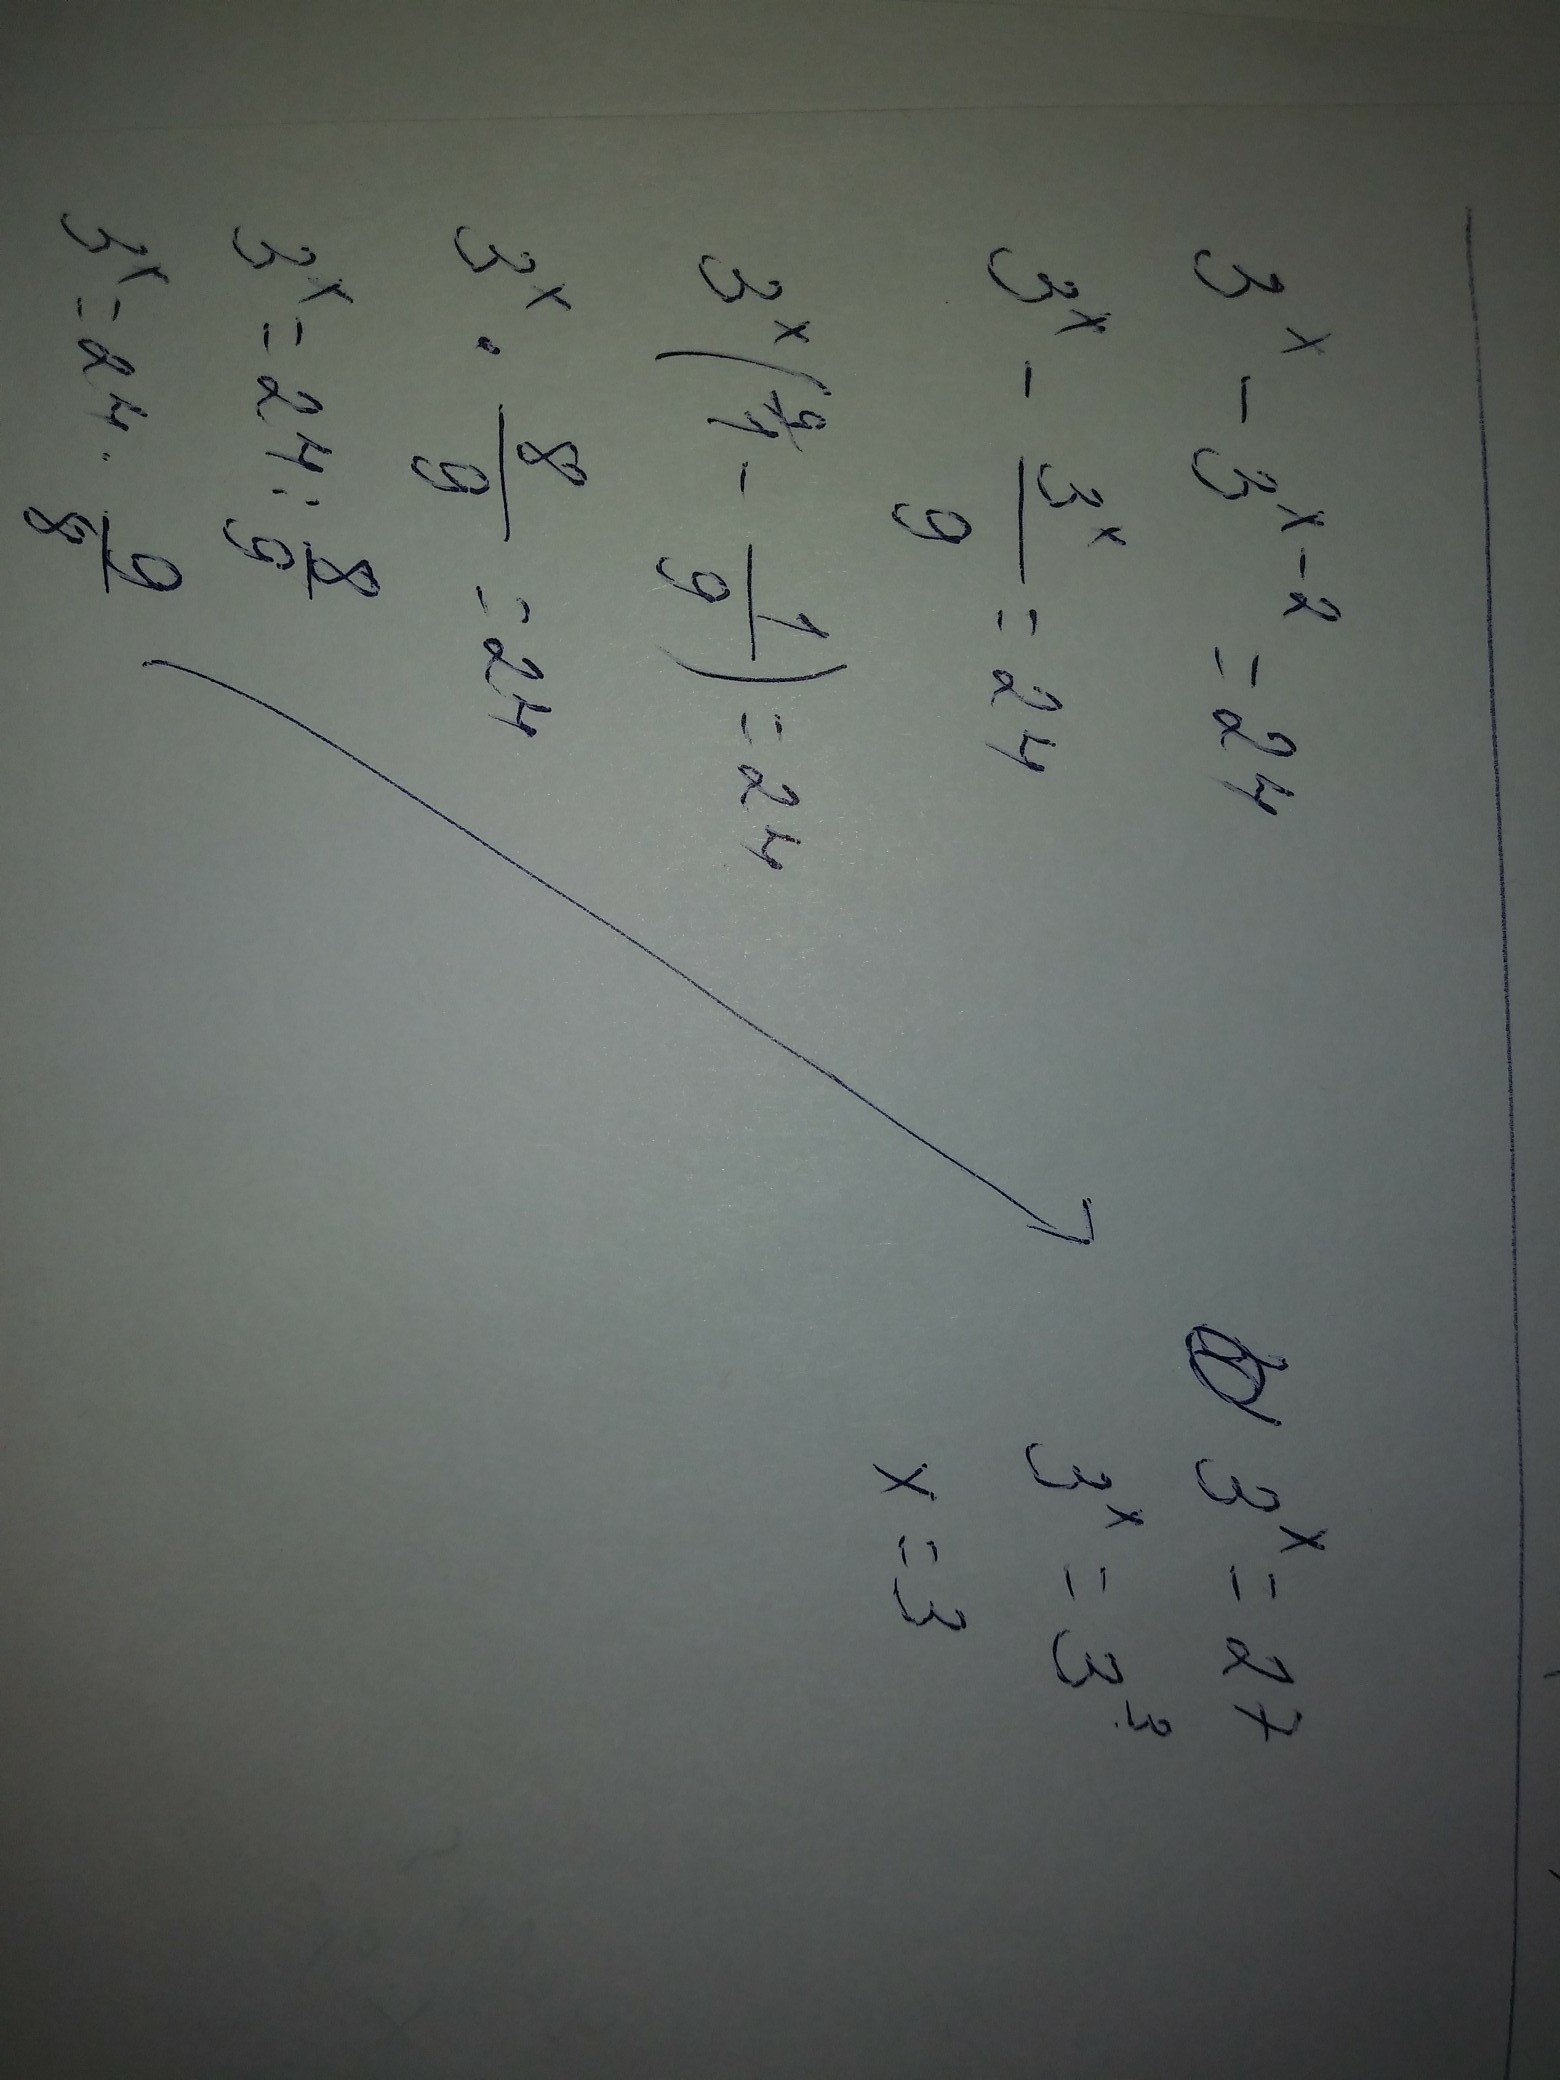 3^x - 3^{x-2} = 24
3^x - 3^x/9 = 24
3^x (1 - 1/9) = 24
3^x · 8/9 = 24
3^x = 24 : 8/9
3^x = 24 · 9/8
3^x = 27
3^x = 3^3
x = 3